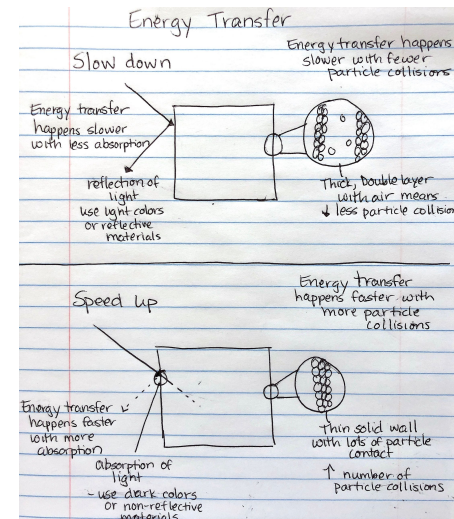 Energy Transfer
Slow down
Energy transfer happens
slower with fewer
particle collisions
Energy transfer
happens slower
with less absorption
reflection of
light
use light colors
or reflective
materials
Thick, Double layer
with air means
↓ less particle collision
Speed up
Energy transfer
happens faster with
more particle
collisions
Energy transfer
happens faster
with more
absorption
absorption of
light
- use dark colors
or non-reflective
materials
Thin solid wall
with lots of particle
contact
↑ number of
particle collisions